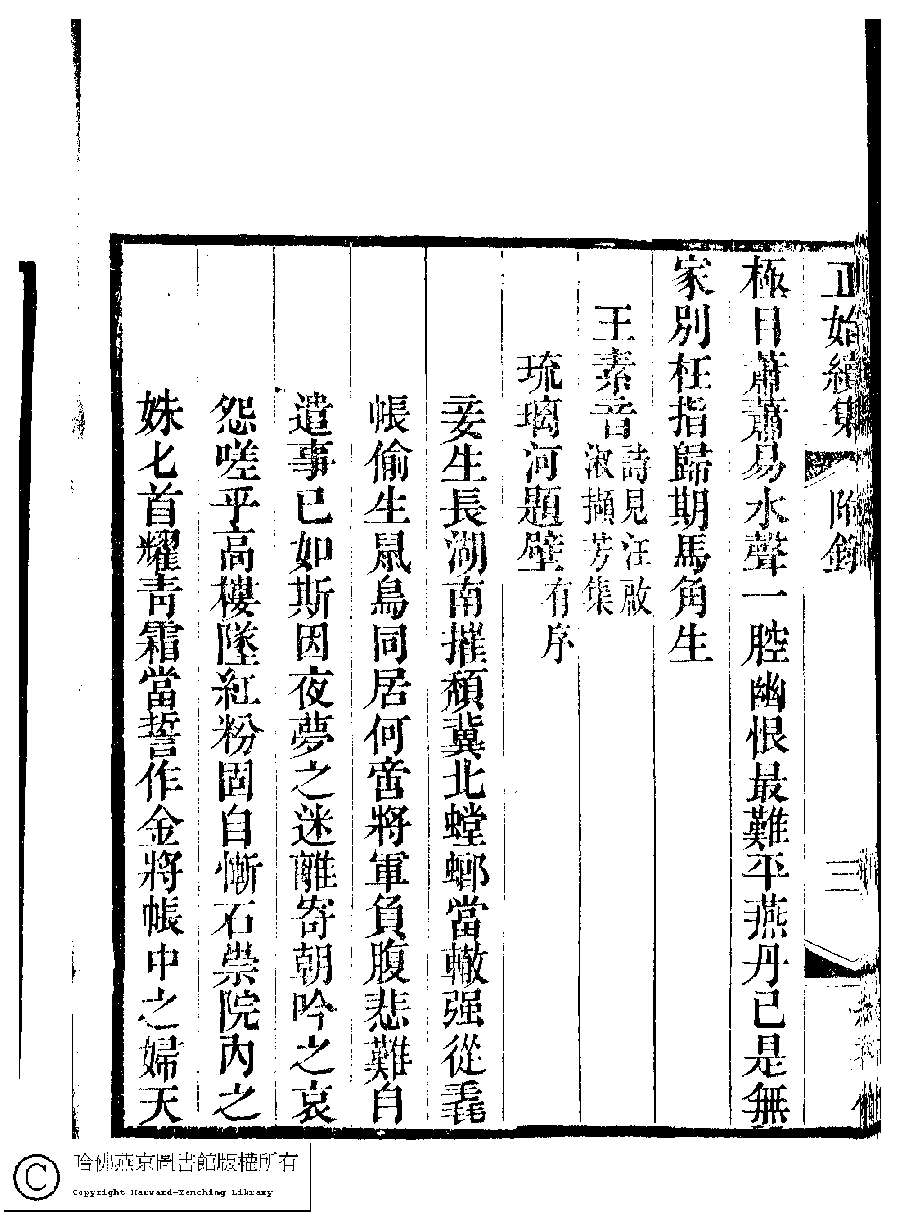 正始續集 附錄 三
極目蕭蕭易水聲一腔幽恨最難平燕丹已是無
家別枉指歸期馬角生
王素音 詩見汪啟
淑擷芳集
琉璃河題壁 有序
妾生長湖南摧頹冀北螳螂當轍强從毳
帳偷生鼠鳥同居何啻將軍負腹悲難自
遣事已如斯因夜夢之迷離寄朝吟之哀
怨嗟乎高樓墜紅粉固自慚石崇院內之
姝匕首耀靑霜當誓作金將帳中之婦天
哈佛燕京圖書館版權所有
Copyright Harvard-Yenching Library